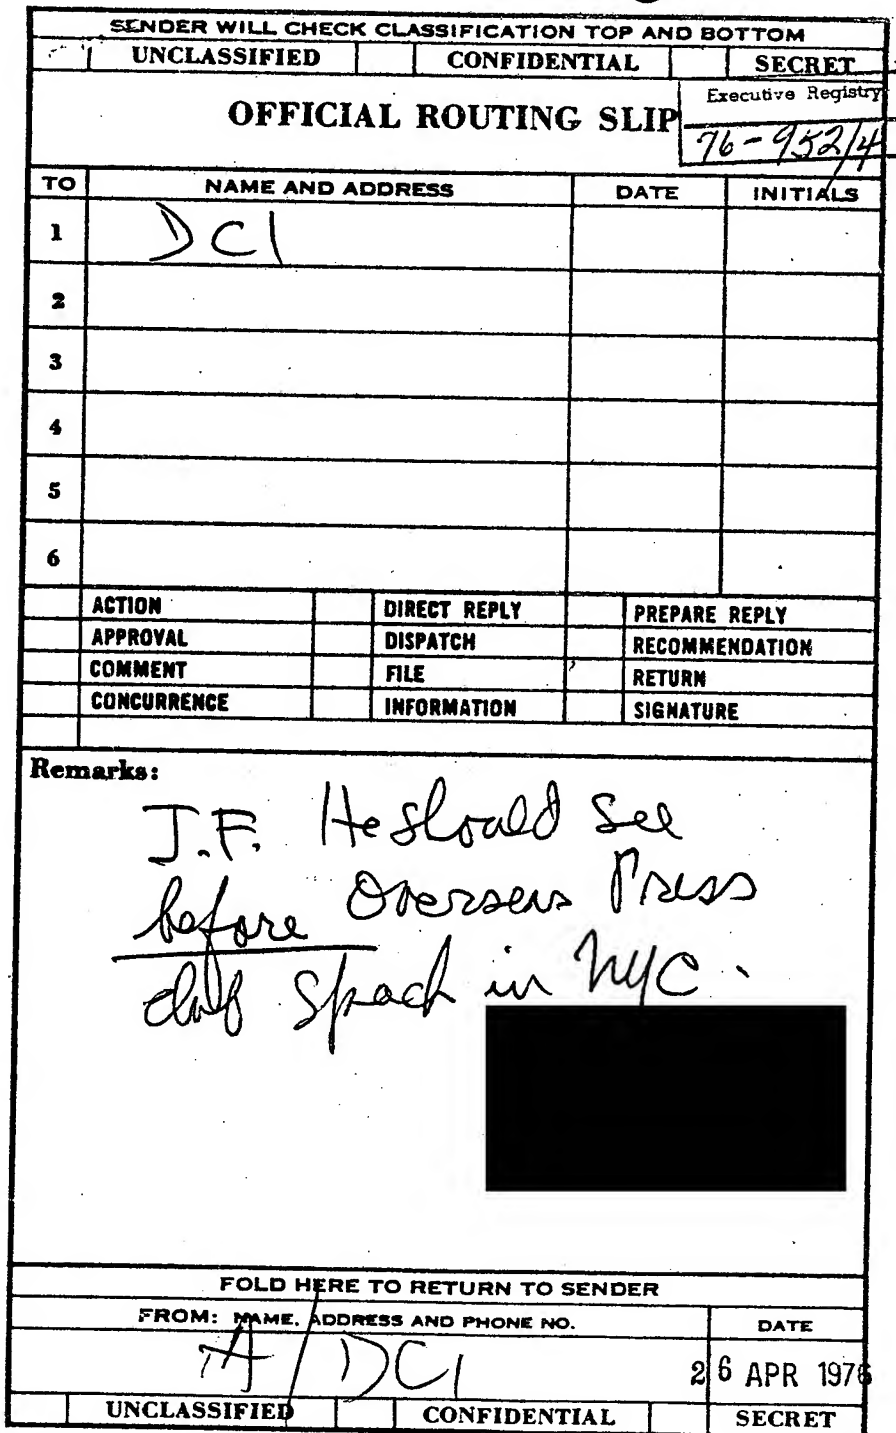 SENDER WILL CHECK CLASSIFICATION TOP AND BOTTOM
UNCLASSIFIED CONFIDENTIAL SECRET
OFFICIAL ROUTING SLIP
Executive Registry
76-952/4
TO NAME AND ADDRESS DATE INITIALS
1 DCI
2
3
4
5
6
ACTION DIRECT REPLY PREPARE REPLY
APPROVAL DISPATCH RECOMMENDATION
COMMENT FILE RETURN
CONCURRENCE INFORMATION SIGNATURE
Remarks:
J.F. He should see
before Overseas Press
club Speach in NYC.
FOLD HERE TO RETURN TO SENDER
FROM: NAME, ADDRESS AND PHONE NO. DATE
A/DCI 26 APR 1976
UNCLASSIFIED CONFIDENTIAL SECRET